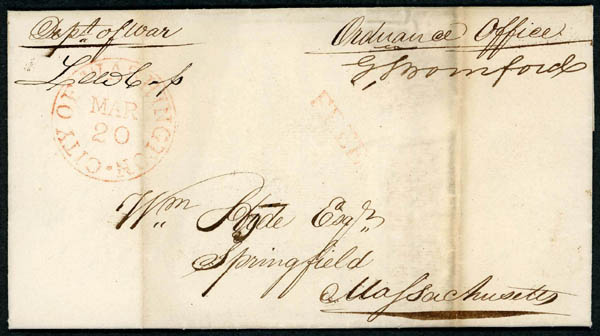 Dept. of War
Ordnance Office
G. Bomford
CITY OF WASHINGTON
MAR
20
FREE
Wm Hyde Esqr.
Springfield
Massachusetts